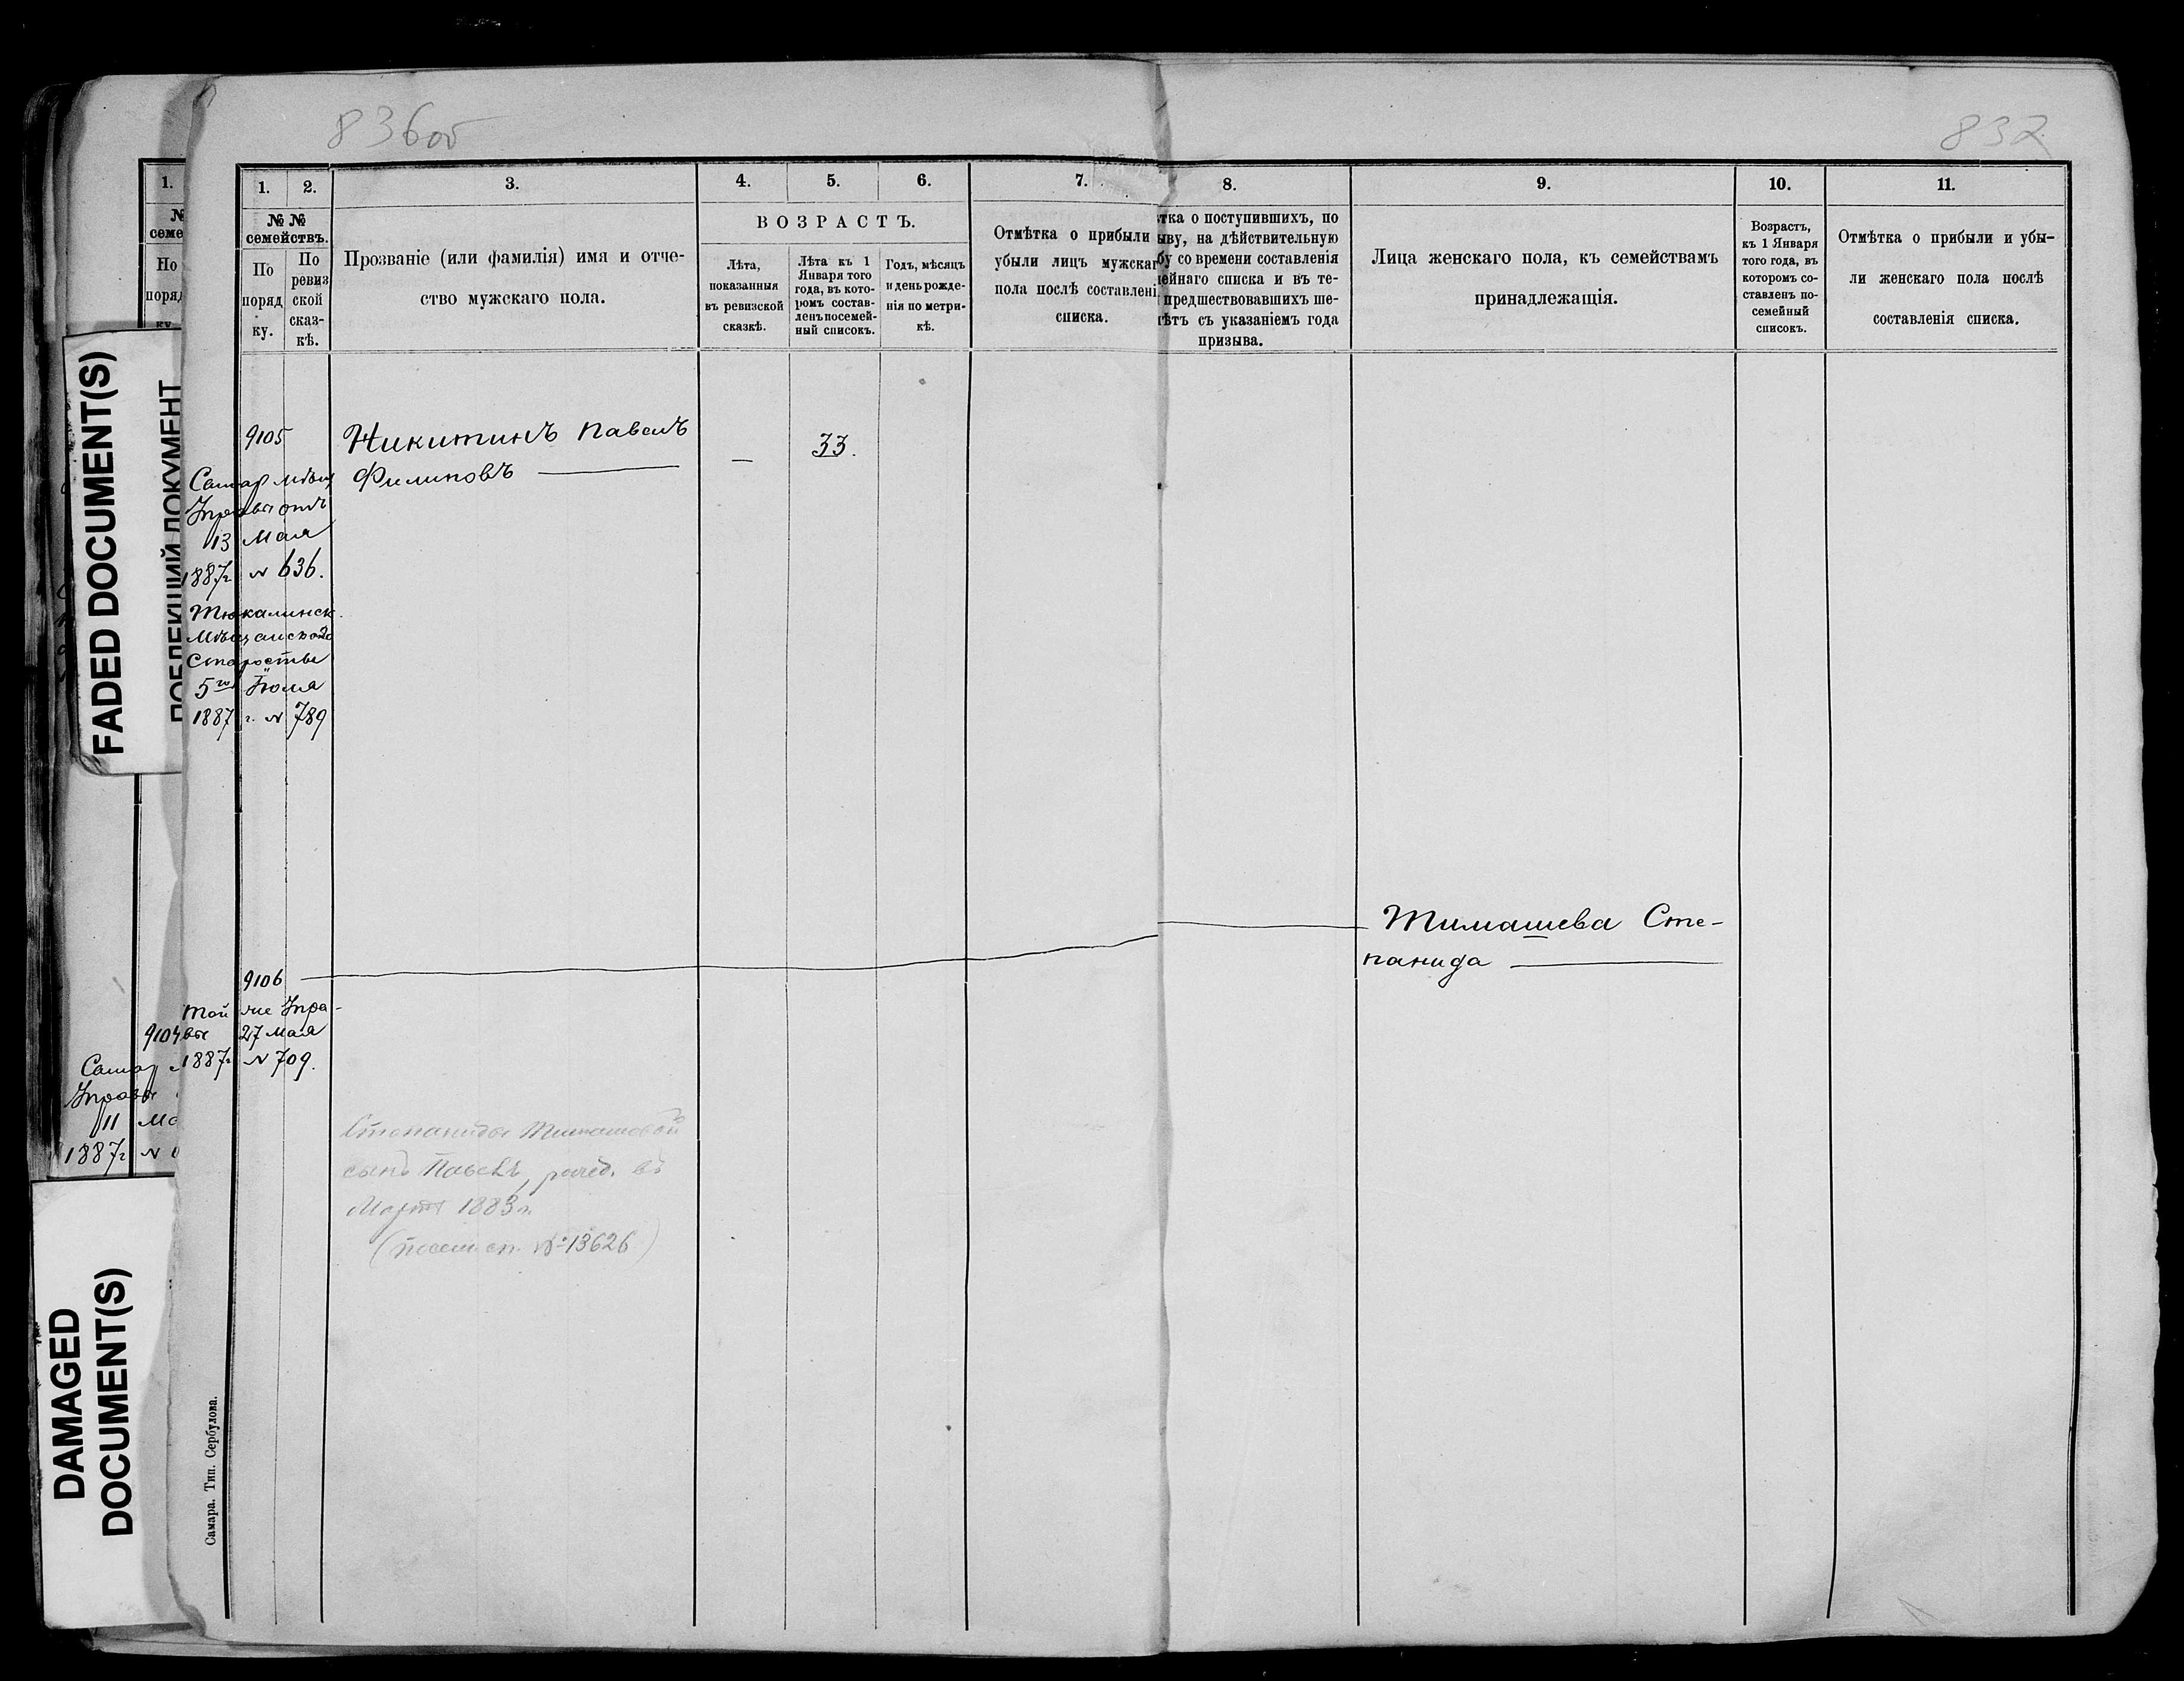 836об
832
1.
№
семе
По
поряд
ку.
1.
2.
3.
4.
5.
6.
7.
8.
9.
10.
11.
№ №
семействъ.
По
поряд
ку.
По
ревиз
ской
сказ-
кѣ.
Прозваніе (или фамилія) имя и отче-
ство мужскаго пола.
ВОЗРАСТЪ.
Лѣта,
показанныя
въ ревизской
сказкѣ.
Лѣта къ 1
Января того
года, въ кото-
ромъ состав-
ленъ посемей-
ный списокъ.
Годъ, мѣсяцъ
и день рожде-
нія по метри-
кѣ.
Отмѣтка о прибыли
убыли лицъ мужскаг
пола послѣ составлені
списка.
тка о поступившихъ, по
ыву, на дѣйствительную
бу со времени составленія
ейнаго списка и въ те-
предшествовавшихъ ше-
ѣтъ съ указаніемъ года
призыва.
Лица женскаго пола, къ семействамъ
принадлежащія.
Возрастъ,
къ 1 Января
того года, въ
которомъ со-
ставленъ по-
семейный
списокъ.
Отмѣтка о прибыли и убы-
ли женскаго пола послѣ
составленія списка.
9105
Никитинъ Павелъ
Филиповъ
—
33.
Самар мѣщ
Управы отъ
13 Мая
1887г. № 636.
Тюкалинск.
Мѣщанскаго
Старосты
5го Іюля
1887 г. № 789
9106
Тимашева Сте-
панида
Той же Упра-
вы 27 Мая
1887г. № 709.
9104
Самар
Управы
11 Ма
1887г. №
Степаниды Тимашевой
сынъ Павелъ, рожд. въ
Мартѣ 1883 г.
(посем. сп. № 13626)
Самара. Тип. Сербулова.
FADED DOCUMENT(S)
ПОБЛЕКШИЙ ДОКУМЕНТ
DAMAGED
DOCUMENT(S)